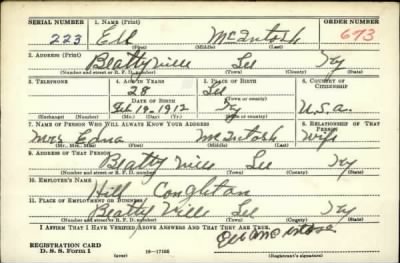 SERIAL NUMBER 1. NAME (Print) ORDER NUMBER
223 Ed McIntosh 673
(First) (Middle) (Last)
2. ADDRESS (Print)
Beattyville Lee Ky
(Number and street or R. F. D. number) (Town) (County) (State)
3. TELEPHONE 4. AGE IN YEARS 5. PLACE OF BIRTH 6. COUNTRY OF CITIZENSHIP
28 Lee
DATE OF BIRTH (Town or county)
Feb 12 1912 Ky U.S.A.
(Exchange) (Number) (Mo.) (Day) (Yr.) (State or country)
7. NAME OF PERSON WHO WILL ALWAYS KNOW YOUR ADDRESS 8. RELATIONSHIP OF THAT PERSON
Mrs Edna McIntosh Wife
(Mr., Mrs., Miss) (First) (Middle) (Last)
9. ADDRESS OF THAT PERSON
Beattyville Lee Ky
(Number and street or R. F. D. number) (Town) (County) (State)
10. EMPLOYER'S NAME
Hill Congleton
11. PLACE OF EMPLOYMENT OR BUSINESS
Beattyville Lee Ky
(Number and street or R. F. D. number) (Town) (County) (State)
I AFFIRM THAT I HAVE VERIFIED ABOVE ANSWERS AND THAT THEY ARE TRUE.
REGISTRATION CARD
D. S. S. Form 1 (over) (Registrant's signature)